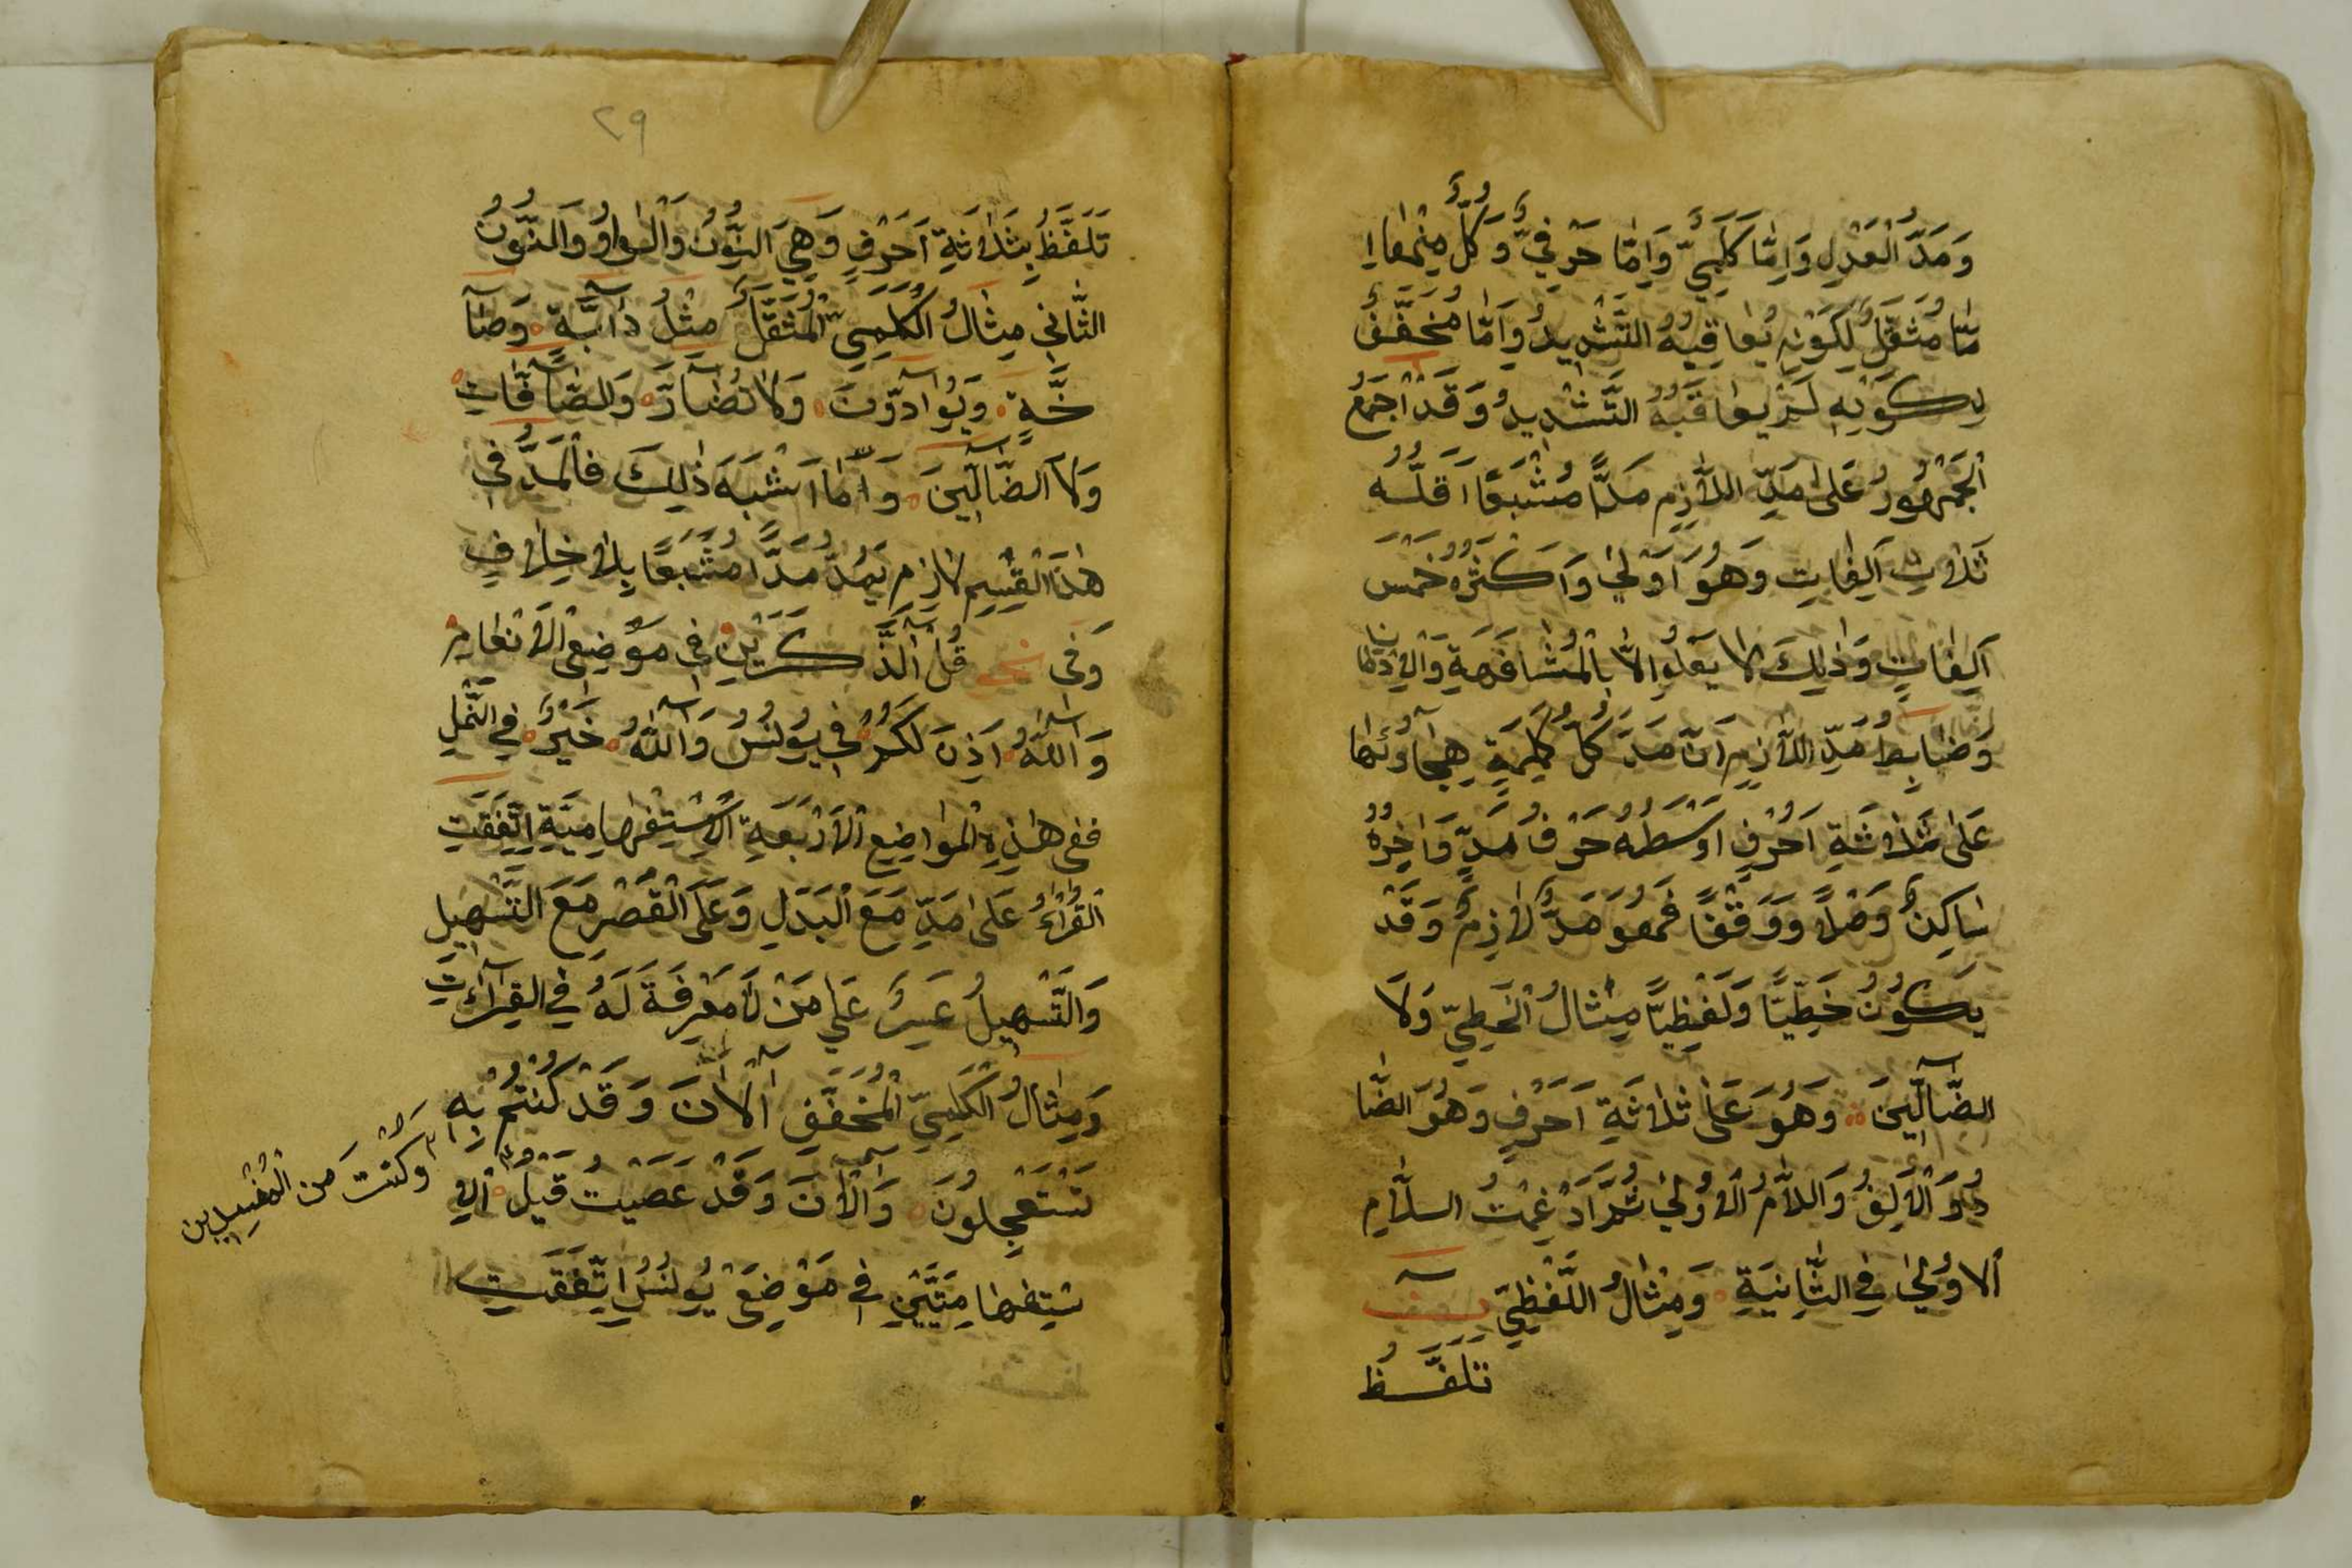 وَمَدُّ الْعَدْلِ وَاِمَّا كَلِمِيٌّ وَاِمَّا حَرْفِيٌّ وَكُلٌّ مِنْهُمَا اِ
مَّا مُثَقَّلٌ لِكَوْنِهِ يُعَاقِبُهُ التَّشْدِيدُ وَاِمَّا مُخَفَّفٌ
لِكَوْنِهِ لَمْ يُعَاقِبْهُ التَّشْدِيدُ وَقَدْ اَجْمَعَ
الْجَمْهُورُ عَلَى مَدِّ اللَّازِمِ مَدًّا مُشْبَعًا اَقَلُّهُ
ثَلَاثِ اَلِفَاتٍ وَهُوَ اَوْلَى وَاَكْثَرُهُ خَمْسَ
اَلِفَاتٍ وَذَلِكَ لَا يَعْلَمُ اِلَّا بِالْمُشَافَهَةِ وَالْاِدْمَانِ
وَضَابِطُ مَدِّ اللَّازِمِ اَنَّ مَدَّ كُلِّ كَلِمَةٍ هِجَاؤُهَا
عَلَى ثَلَاثَةِ اَحْرُفٍ اَوْسَطُهُ حَرْفُ مَدٍّ وَاٰخِرُهُ
سَاكِنٌ وَصْلًا وَوَقْفًا فَهُوَ مَدٌّ لَازِمٌ وَقَدْ
يَكُونُ خَطِّيًّا وَلَفْظِيًّا مِثَالُ الْخَطِّيِّ وَلَا
الضَّآلِّينَ وَهُوَ عَلَى ثَلَاثَةِ اَحْرُفٍ وَهُوَ الضَّا
دُ وَالْاَلِفُ وَاللَّامُ الْاُولَى ثُمَّ اُدْغِمَتْ السلَّامِ
الْاُولَى فِي الثَّانِيَةِ وَمِثَالُ اللَّفْظِيِّ ن
تَلَفَّظُ
٢٩
تَلَفَّظُ بِثَلَاثَةِ اَحْرُفٍ وَهِيَ النُّونُ وَالْوَاوُ وَالنُّونُ
الثَّانِي مِثَالُ الْكَلِمِيِّ الْمُثَقَّلِ مِثْلُ دَآبَّةٍ وَصَآ
خَّةٍ وَيُوَآدُّونَ وَلَا تُضَآرَّ وَالصَّآفَّاتِ
وَلَا الضَّآلِّينَ وَاَمَّا اَشْبَهَ ذَلِكَ فَالْمَدُّ فِي
هَذَا الْقِسْمِ لَازِمٌ يَمُدُّ مَدًّا مُشْبَعًا بِلَا خِلَافٍ
وَفِي قُلْ آلذَّكَرَيْنِ فِي مَوْضِعَيِ الْاَنْعَامِ
وَآللَّهُ اَذِنَ لَكُمْ فِي يُونُسَ وَآللَّهُ خَيْرٌ فِي النَّمْلِ
فَفِي هَذِهِ الْمَوَاضِعِ الْاَرْبَعَةِ الْاِسْتِفْهَامِيَّةِ اِتَّفَقَتِ
الْقُرَّاءُ عَلَى مَدِّ مَعَ الْبَدَلِ وَعَلَى الْقَصْرِ مَعَ التَّسْهِيلِ
وَالتَّسْهِيلُ عَسِرٌ عَلَى مَنْ لَا مَعْرِفَةَ لَهُ فِي الْقِرَآءَاتِ
وَمِثَالُ الْكَلِمِيِّ الْمُخَفَّفِ آلْآنَ وَقَدْ كُنْتُمْ بِهِ
تَسْتَعْجِلُونَ وَآلْآنَ وَقَدْ عَصَيْتَ قَبْلُ الْاِ
سْتِفْهَامِيَّتَيْنِ فِي مَوْضِعَيْ يُونُسَ اِتَّفَقَتِ
وَكُنْتَ مِنَ الْمُفْسِدِينَ